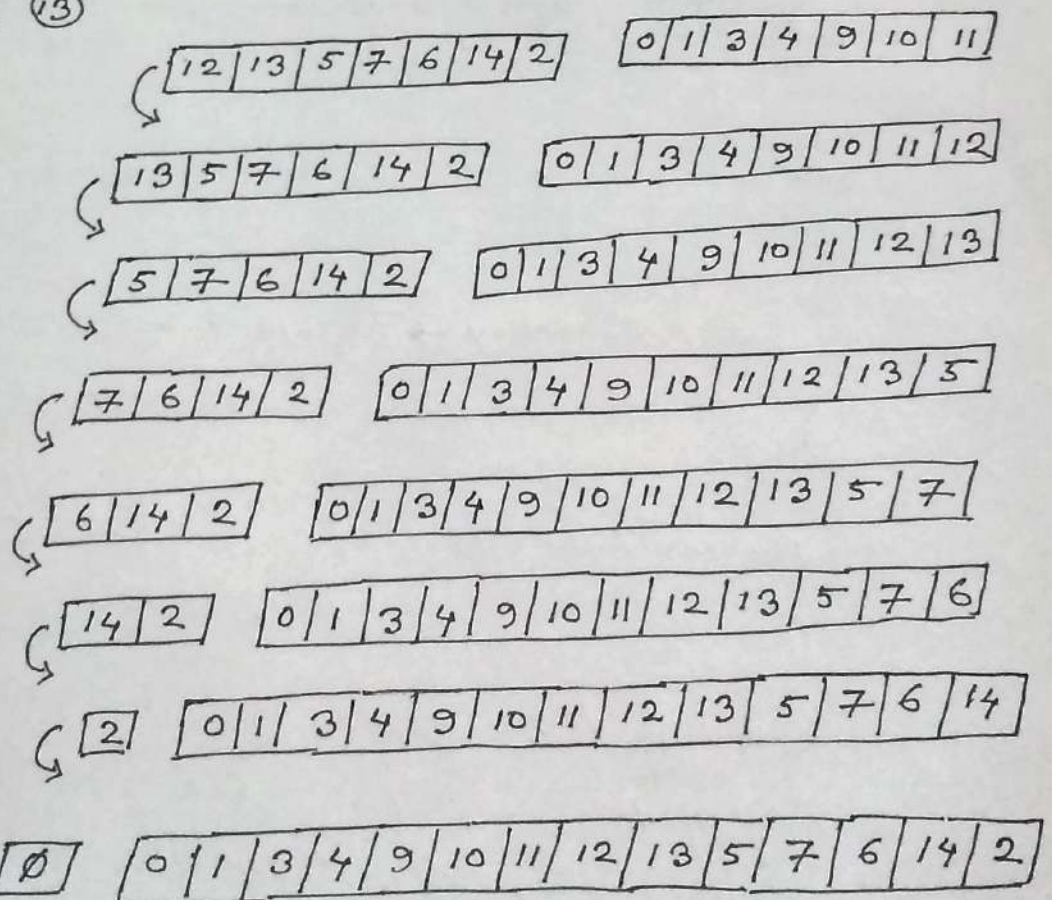 13
12 13 5 7 6 14 2 0 1 3 4 9 10 11
13 5 7 6 14 2 0 1 3 4 9 10 11 12
5 7 6 14 2 0 1 3 4 9 10 11 12 13
7 6 14 2 0 1 3 4 9 10 11 12 13 5
6 14 2 0 1 3 4 9 10 11 12 13 5 7
14 2 0 1 3 4 9 10 11 12 13 5 7 6
2 0 1 3 4 9 10 11 12 13 5 7 6 14
Ø 0 1 3 4 9 10 11 12 13 5 7 6 14 2